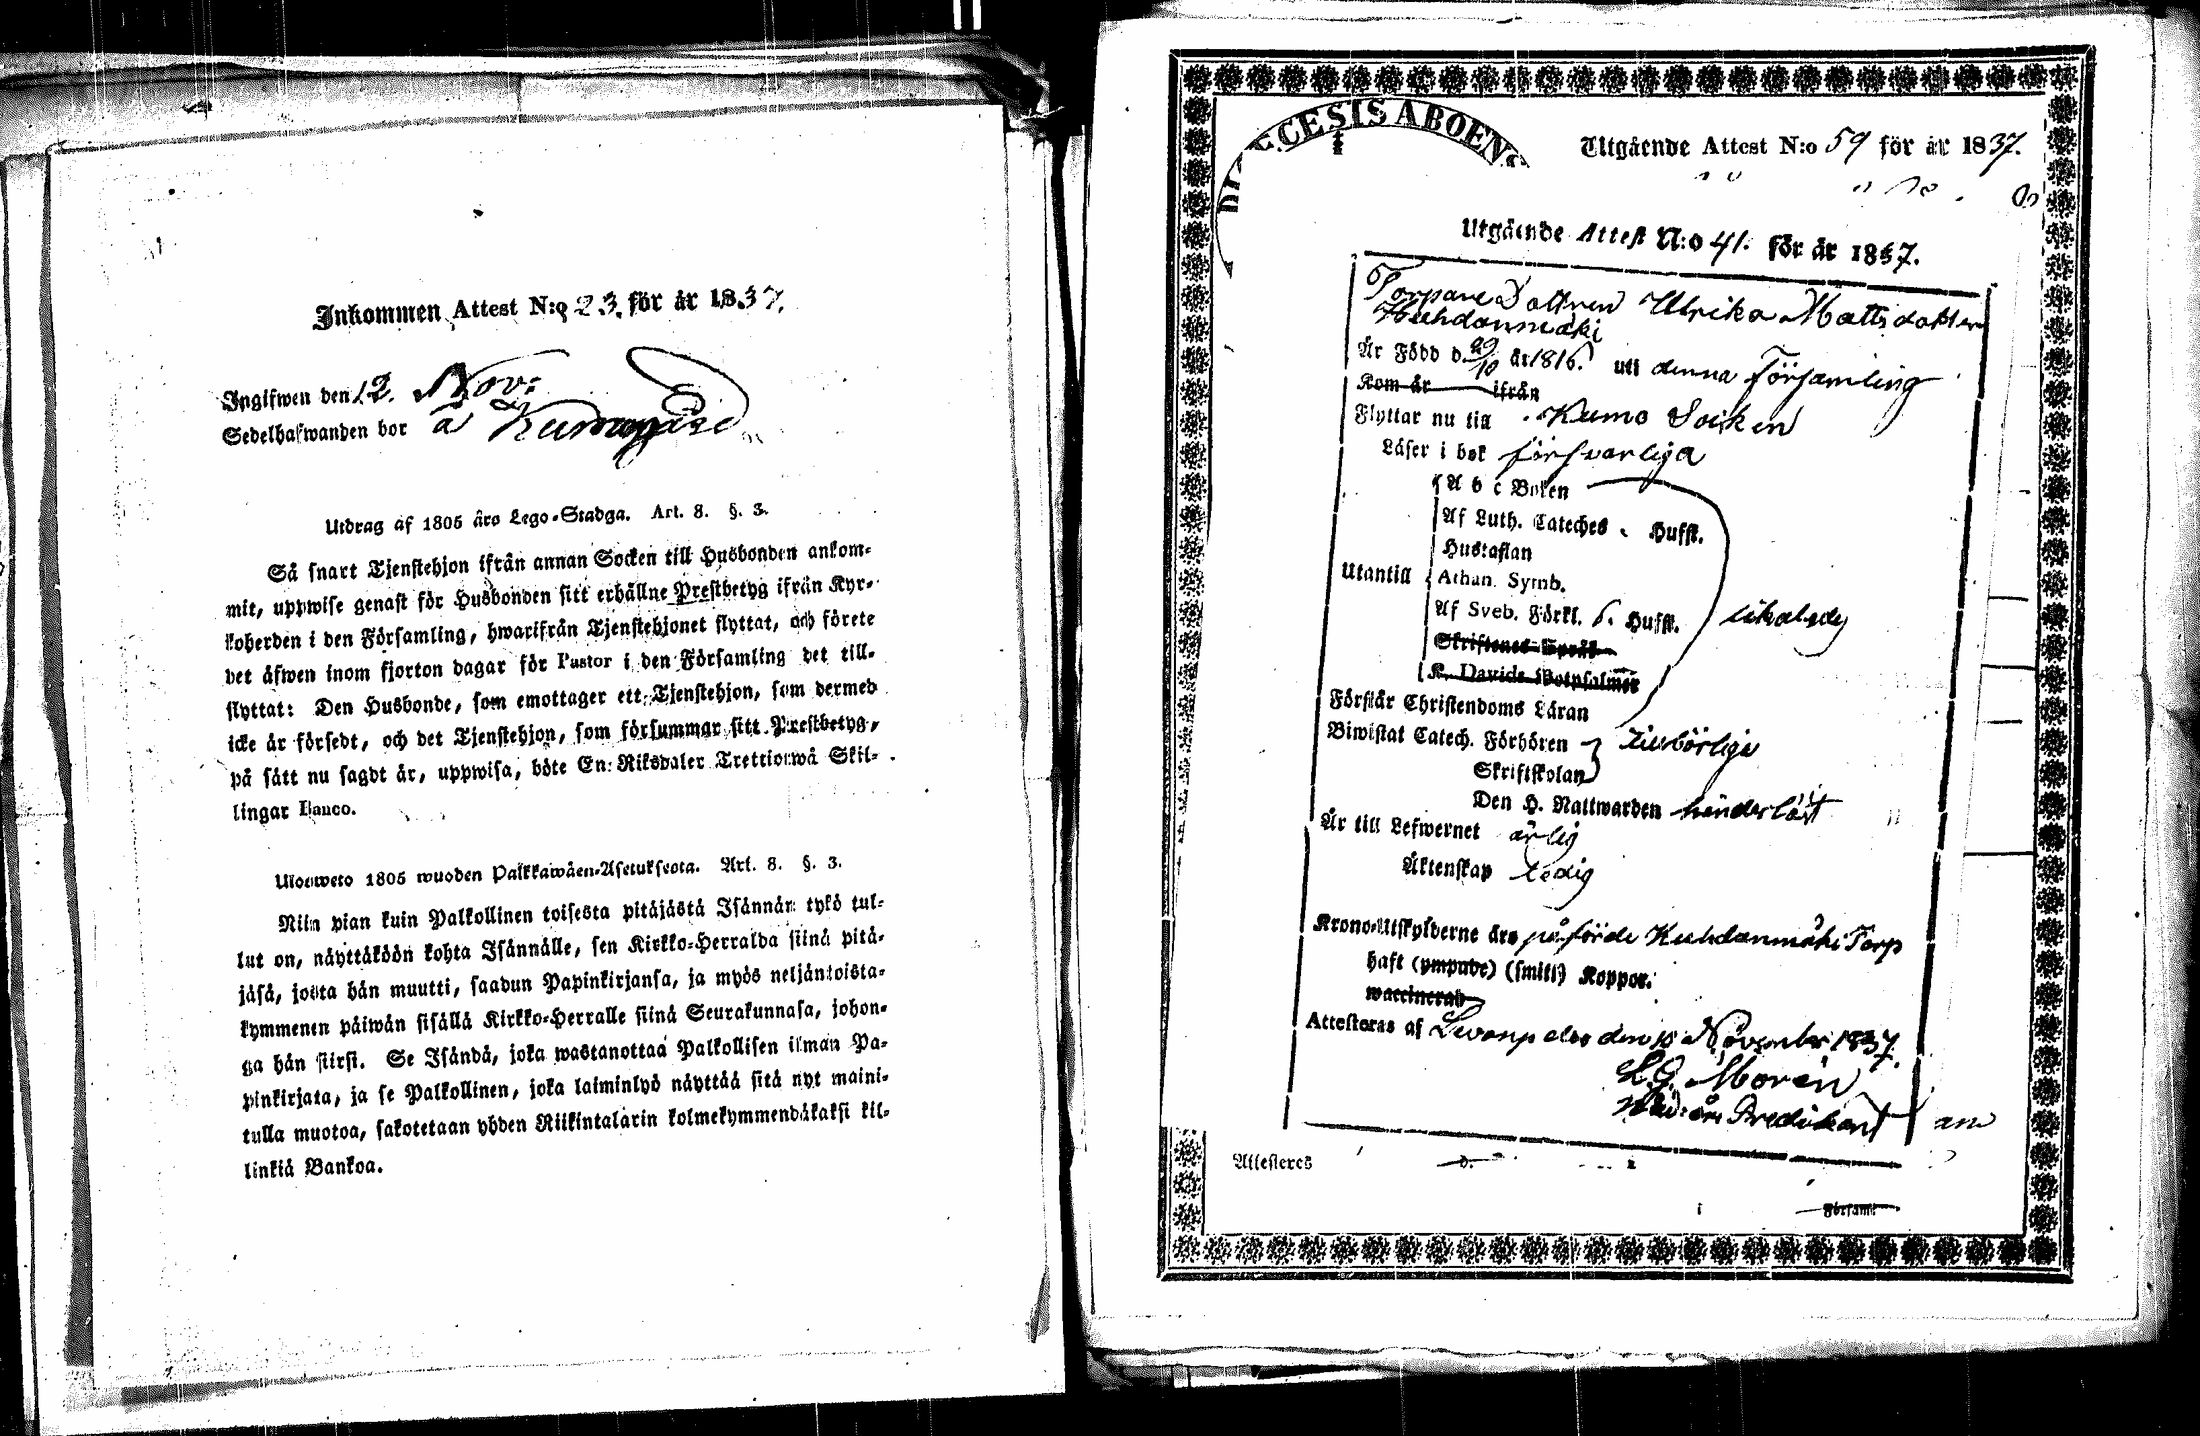 Inkommen Attest N:o 23. för år 1837.
Ingifwen den 12. Nov:
Sedelhafwanden bor å
Utdrag af 1805 års Lego-Stadga. Art. 8. §. 3.
Så snart Tjenstehjon ifrån annan Socken till Husbonden ankom-
mit, uppwise genast för Husbonden sitt erhållne Prestbetyg ifrån Kyr-
koherden i den Församling, hwarifrån Tjenstehjonet flyttat, och förete
det äfwen inom fjorton dagar för Pastor i den Församling det till-
flyttat: Den Husbonde, som emottager ett Tjenstehjon, som dermed
icke är försedt, och det Tjenstehjon, som försummar sitt Prestbetyg,
på sätt nu sagdt är, uppwisa, böte En Riksdaler Trettiotwå Skil-
lingar Banco.
Ulosweto 1805 wuoden Palkkawäen-Asetuksesta. Art. 8. §. 3.
Niin pian kuin Palkollinen toisesta pitäjästä Isännän tykö tul-
lut on, näyttäköön kohta Isännälle, sen Kirkko-Herralda siinä pitä-
jäsä, josta hän muutti, saadun Papinkirjansa, ja myös neljäntoista-
kymmenen päiwän sisällä Kirkko-Herralle siinä Seurakunnasa, johon-
ga hän siirsi. Se Isändä, joka wastanottaa Palkollisen ilman Pa-
pinkirjata, ja se Palkollinen, joka laiminlyö näyttää sitä nyt maini-
tulla muotoa, sakotetaan yhden Riikintalarin kolmekymmendäkaksi kil-
linkiä Bankoa.
DIOECESIS ABOENS
Utgående Attest N:o 59 för år 1837.
Utgående Attest N:o 41. för år 1837.
Torpare Dottren Ulrika Matts dotter
Kuhdanmäki
Är Född d. 29/10 år 1816. uti denna Församling
Kom år ifrån
Flyttar nu till Kumo Socken
Läser i bok försvarliga
A b c Boken
Af Luth. Cateches Hufst.
Hustaflan
Utantill Athan. Symb.
Af Sveb. Förkl. 6. Hufst. likaledes
Skriftenes Språk
K. Davids Botpsalmer
Förstår Christendoms Läran
Biwistat Catech. Förhören tillbörliga
Skriftskolan
Den H. Nattwarden hinderlöst
Är till Lefwernet ärlig
Äktenskap ledig
Krono-Utskylderne äro påförde Kuhdanmäki Torp
haft (ympade) (smitt) Koppor.
waccinerad
Attesteras af den 10 November 1837.
L.G. Morén
Predikant
Attesteres d.
Församl